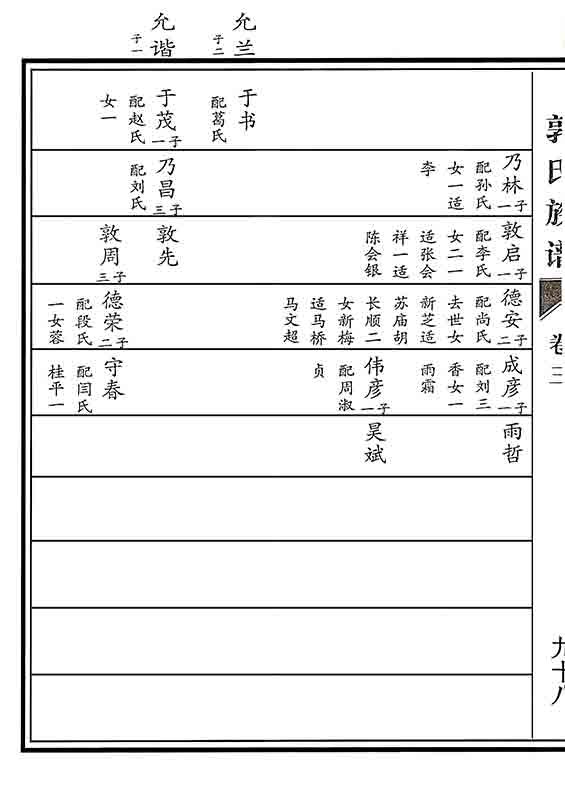 郭氏族谱
卷三
九十八
允兰
子二
允谐
子一
于书
配葛氏
于茂
子一
配赵氏
女一
乃林
子一
配孙氏
女一适
李
乃昌
子三
配刘氏
敦启
子一
配李氏
女二一
适张会
祥一适
陈会银
敦先
敦周
子三
德安
子二
配尚氏
去世女
新芝适
苏庙胡
长顺二
女新梅
适马桥
马文超
德荣
子二
配段氏
一女蓉
成彦
子一
配刘三
香女一
雨霜
伟彦
子一
配周淑
贞
守春
配闫氏
桂平一
雨哲
昊斌